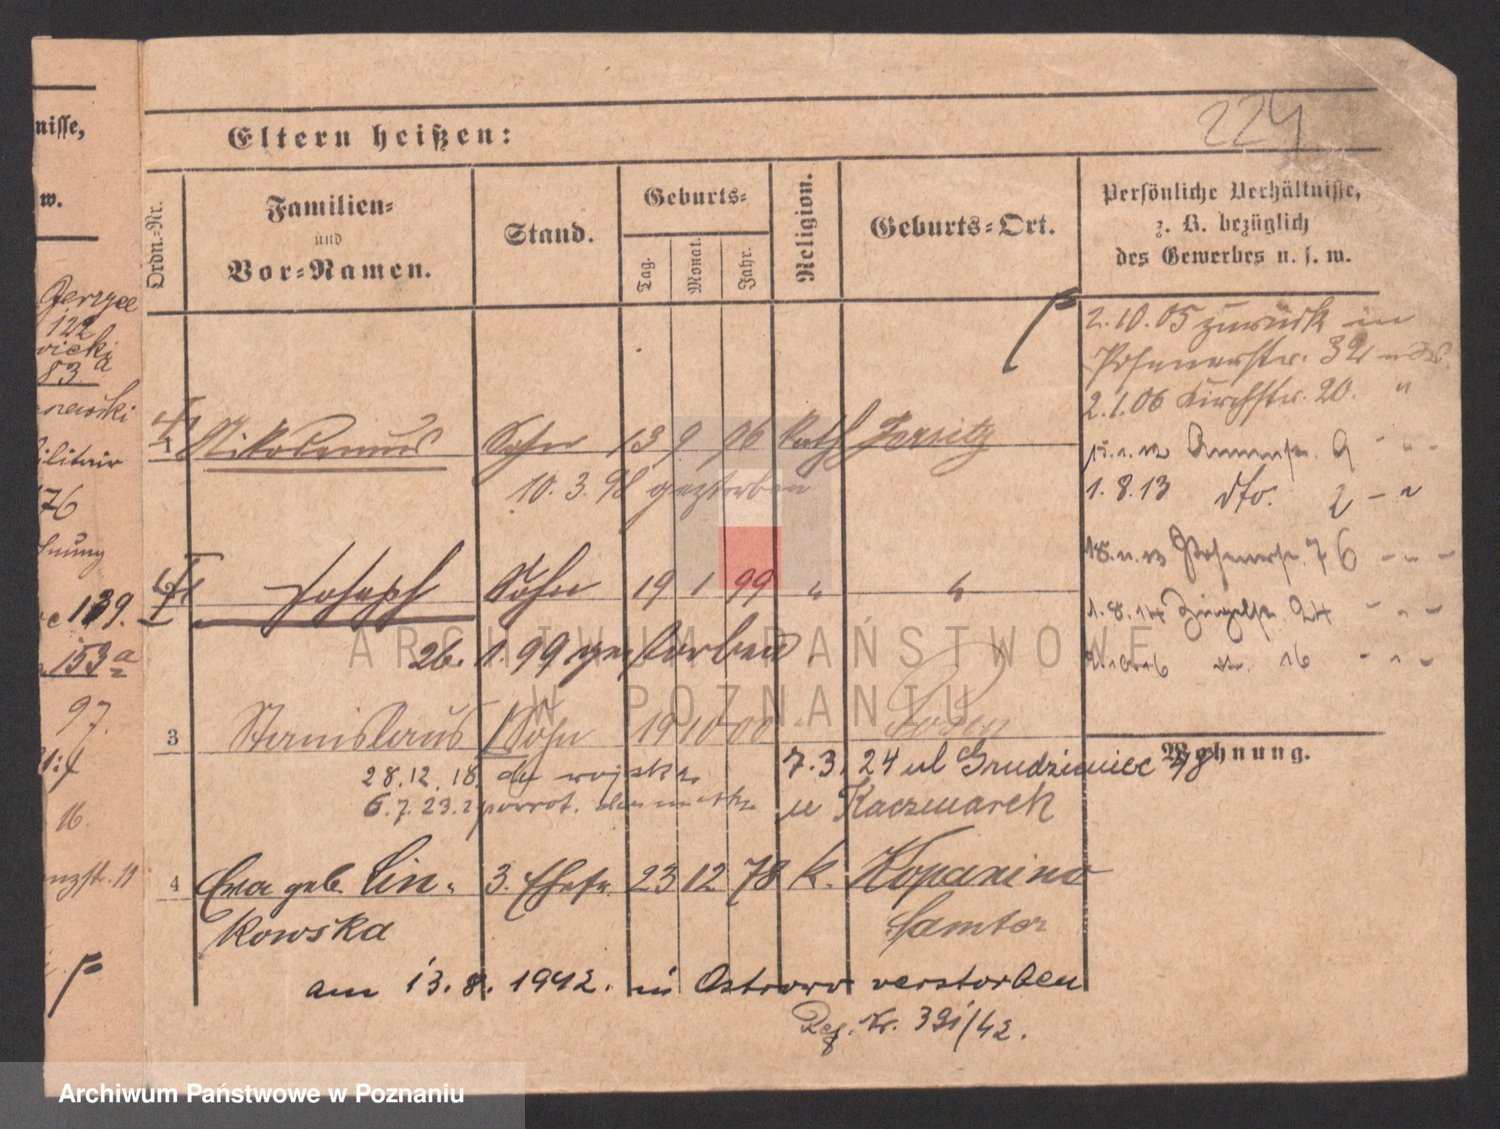 224
nisse,
w.
Eltern heißen:
Ordn.-Nr.
Familien-
und
Vor-Namen.
Stand.
Geburts-
Tag.
Monat.
Jahr.
Religion.
Geburts-Ort.
Persönliche Verhältnisse,
z. B. bezüglich
des Gewerbes u. s. w.
122
wicki
83a
ilitair
176
139.
153a
97.
16.
2.10.05 zurück in
Posenerstr. 32
2.1.06 Kirchstr. 20. "
9
1.8.13 dto. 2 - "
Posenerstr. 76
1.8.14 Ziegelstr. 24
16
1 Nikodemus Sohn 13 9 96 kath Jersitz
10.3.98 gestorben
2 Joseph Sohn 19 1 99 " "
26.1.99 gestorben.
3 Stanislaus Sohn 19 10 00 " Posen
28.12.18. do wojska
6.7.23. powrót.
7.3.24 ul Grudzieniec 78
u Kaczmarek
Wohnung.
4 Eva geb. Lin-
kowska
3. Ehefr. 23 12 78 k. Kopanino
Samter
am 13.8.1942. in Ostrowo verstorben
Reg. Nr. 391/42.
ARCHIWUM PAŃSTWOWE
W POZNANIU
Archiwum Państwowe w Poznaniu